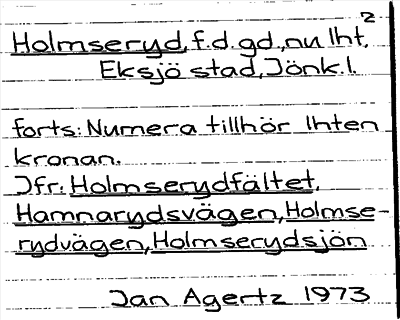 2
Holmseryd, f.d. gd., nu lht,
Eksjö stad, Jönk.l.
forts: Numera tillhör lhten
kronan.
Jfr: Holmserydfältet,
Hamnarydsvägen, Holmse-
rydvägen, Holmserydsjön
Jan Agertz 1973